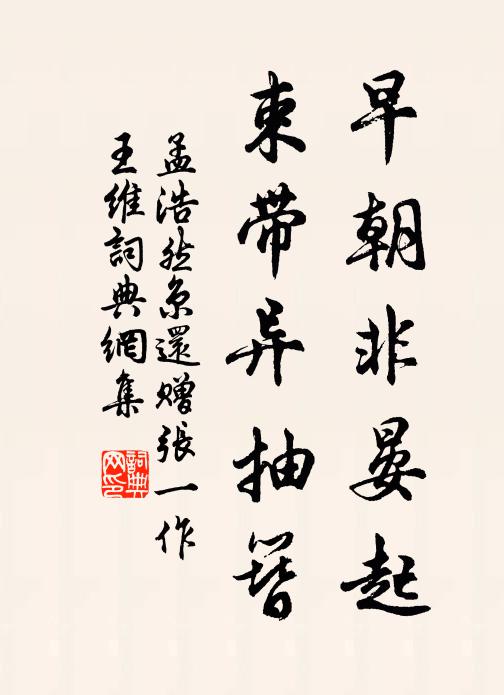 早朝非晏起
束带异抽簪
孟浩然京還赠張一作
王維詞典網集
詞典网印